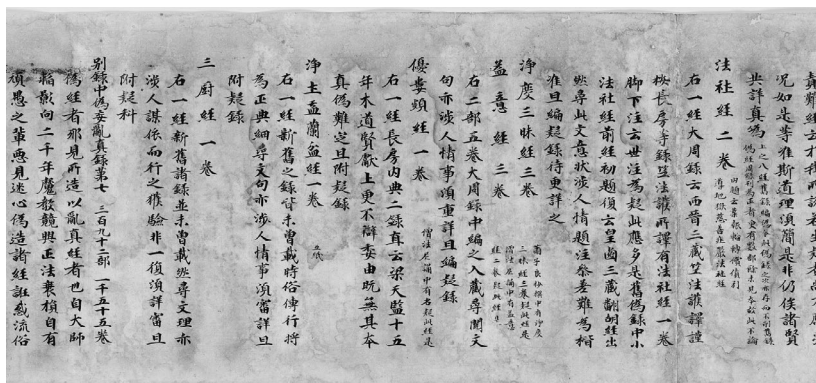 況如是等准斯道理須簡是非仍俟諸賢
共詳真偽
法社經二卷
右一經大周錄云西晉三藏竺法護譯謹
按長房等錄竺法護所譯有法社經一卷
脚下注云世注為疑此應多是舊偽錄中小
法社經前經初題復云皇國三藏翻胡經出
然尋此文意狀涉人情題注參差難為楷
准且編疑錄待更詳之
淨度三昧經三卷
益意經三卷
右二部五卷大周錄中編之入藏尋閱文
句亦涉人情事須重詳且編疑錄
優婁頻經一卷
右一經長房内典二錄直云梁天監十五
年木道賢獻上更不辯委由既無其本
真偽難定且附疑錄
淨土盂蘭盆經一卷 五紙
右一經新舊之錄皆未曾載時俗傳行將
為正典細尋文句亦涉人情事須審詳且
附疑錄
三厨經一卷
右一經新舊諸錄並未曾載然尋文理亦
涉人謀依而行之獲驗非一復須詳審且
附疑科
別錄中偽妄亂真錄第七 三百九十二部一千五十五卷
偽經者邪見所造以亂真經者也自大師
韜影向二千年魔教競興正法衰損自有
頑愚之輩惡見迷心偽造諸經誑惑流俗